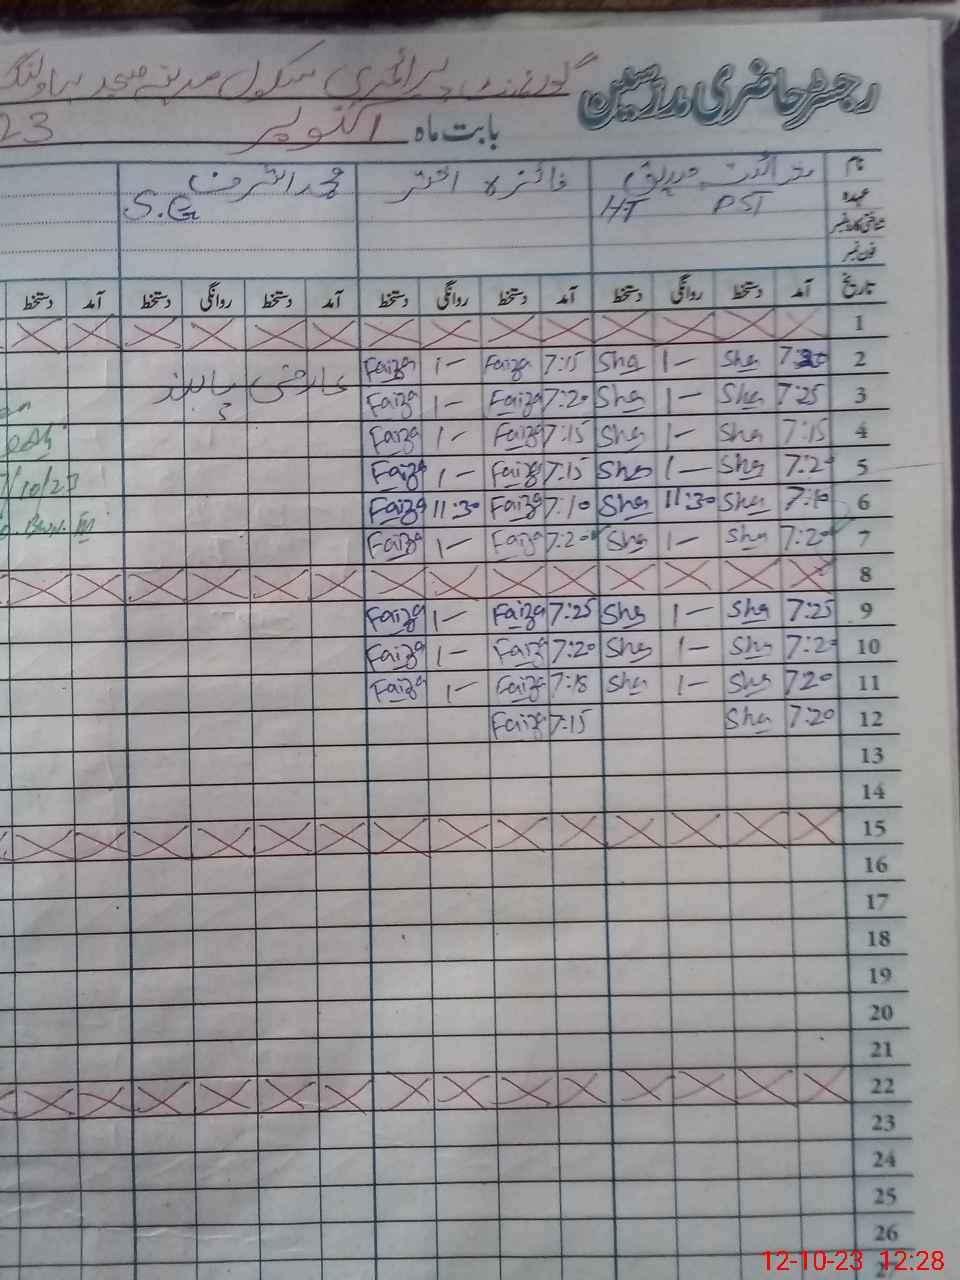 رجسٹر حاضری مدرسین
گورنمنٹ پرائمری سکول مدینہ مسجد
بابت ماہ اکتوبر 23
نام صدیق فائزہ اختر محمد اشرف
عہدہ PST HT S.G
شناختی کارڈ نمبر
فون نمبر
تاریخ آمد دستخط روانگی دستخط آمد دستخط روانگی دستخط آمد دستخط روانگی دستخط آمد دستخط
1
2 Sha 1- Sha 7:15 Faiza 1- Faiza
3 7:25 Sha 1- Sha 7:20 Faiza 1- Faiza عارضی
4 7:15 Sha 1- Sha 7:15 Faiza 1- Faiza
5 7:20 Sha 1- Sha 7:15 Faiza 1- Faiza
6 7:10 Sha 11:30 Sha 7:10 Faiza 11:30 Faiza
7 7:20 Sha 1- Sha 7:20 Faiza 1- Faiza
8
9 7:25 Sha 1- Sha 7:25 Faiza 1- Faiza
10 7:20 Sha 1- Sha 7:20 Faiza 1- Faiza
11 7:20 Sha 1- Sha 7:18 Faiza 1- Faiza
12 7:20 Sha 7:15 Faiza
13
14
15
16
17
18
19
20
21
22
23
24
25
26
/10/23
12-10-23 12:28